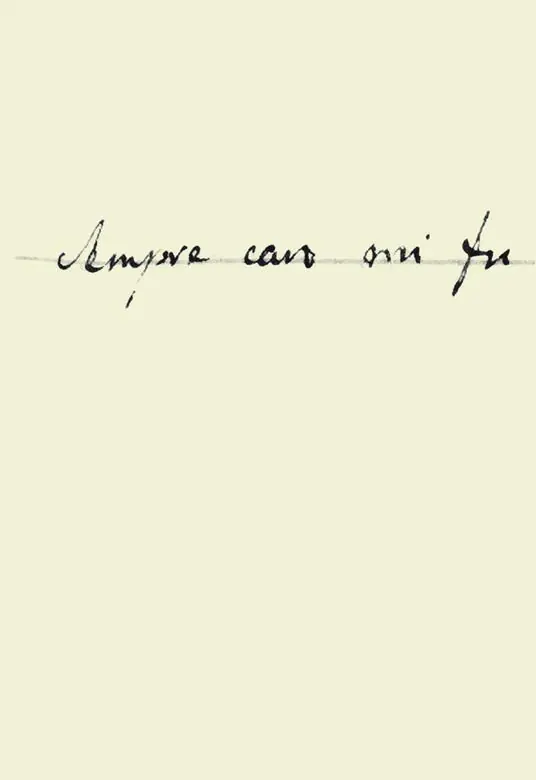 Sempre caro mi fu